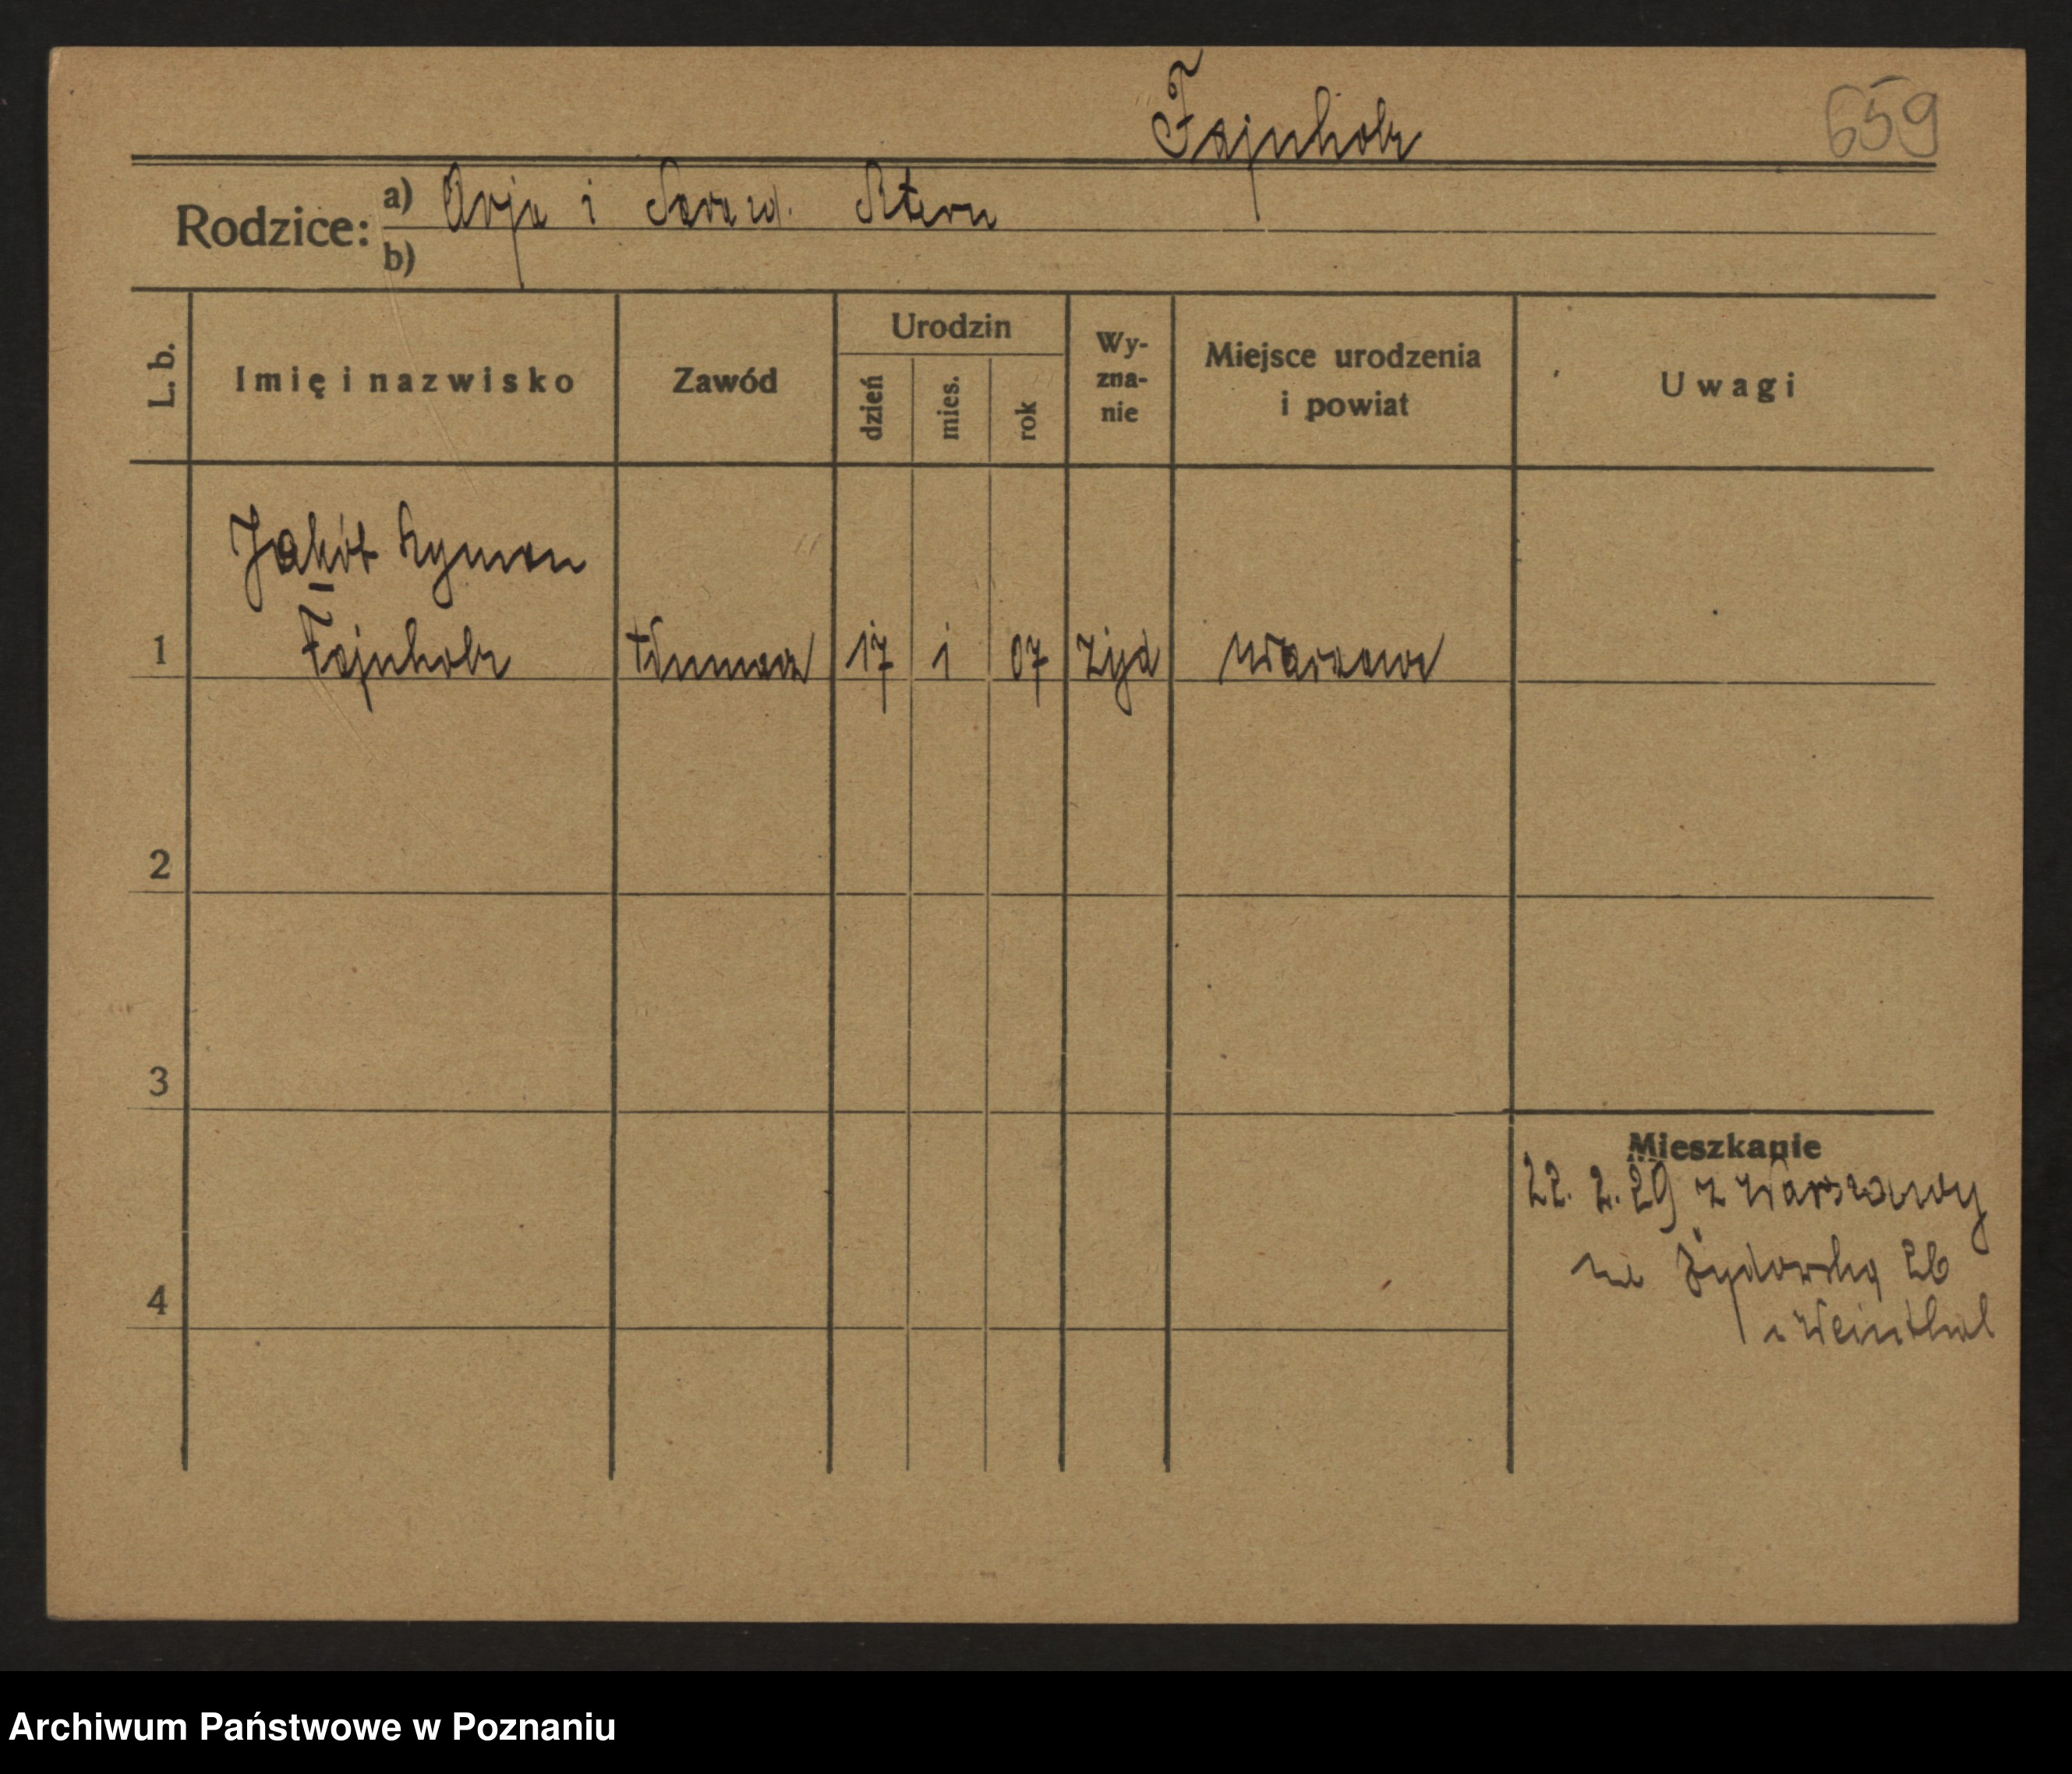 Fajnholz
659
Rodzice: a) Arja i Sara zd. Stern
b)
L. b. Imię i nazwisko Zawód Urodzin dzień mies. rok Wy-zna-nie Miejsce urodzenia i powiat Uwagi
Jakób Szymon
1 Fajnholz tłumacz 17 1 07 żyd Warszawa
2
3
Mieszkanie
22. 2. 29 z Warszawy
na Żydowską 26
4
u Weinthal
Archiwum Państwowe w Poznaniu